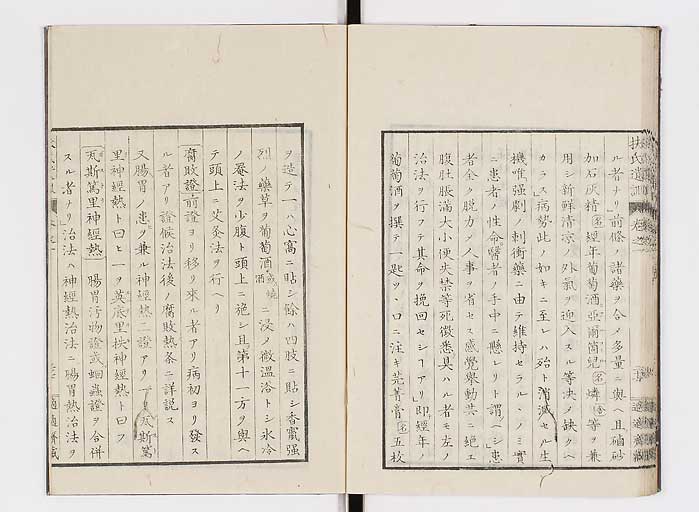 扶氏遺訓
ル者ナリ前條ノ諸藥ヲ合メ多量ニ與ヘ且硇砂
加石灰精經年葡萄酒亞爾箇兒燐等ヲ兼
用シ新鮮清凉ノ外氣ヲ迎入スル等決メ缺クヘ
カラス病勢此ノ如キニ至レハ殆ト消滅セル生
機唯强劇ノ刺衝藥ニ由テ維持セラルヽノミ實
ニ患者ノ性命醫者ノ手中ニ懸レリト謂ヘシ患
者全ク脫力メ人事ヲ省セス感覺舉動共ニ絕エ
腹肚脹滿大小便失禁等死徵悉具ハル者モ左ノ
治法ヲ行フテ其命ヲ挽回セシヿアリ即經年ノ
葡萄酒ヲ撰テ一匙ツヽ口ニ注キ芫菁膏五枚
ヲ造テ一ハ心窩ニ貼シ餘ハ四肢ニ貼シ香竄强
烈ノ藥草ヲ葡萄酒或燒酒ニ浸メ微温浴トシ氷冷
ノ罨法ヲ少腹ト頭上ニ施シ且第十一方ヲ與ヘ
テ頭上ニ艾灸法ヲ行ヘリ
腐敗證前證ヨリ移リ來ル者アリ病初ヨリ發ス
ル者アリ證候治法後ノ腐敗熱条ニ詳說ス
又腸胃ノ患ヲ兼ル神經熱二證アリ一ヲ瓦斯篤
里神經熱ト曰ヒ一ヲ英底里扶神經熱ト曰フ
瓦斯篤里神經熱 腸胃汚物證或蛔蟲證ヲ合併
スル者ナリ治法ハ神經熱治法ニ腸胃熱治法ヲ